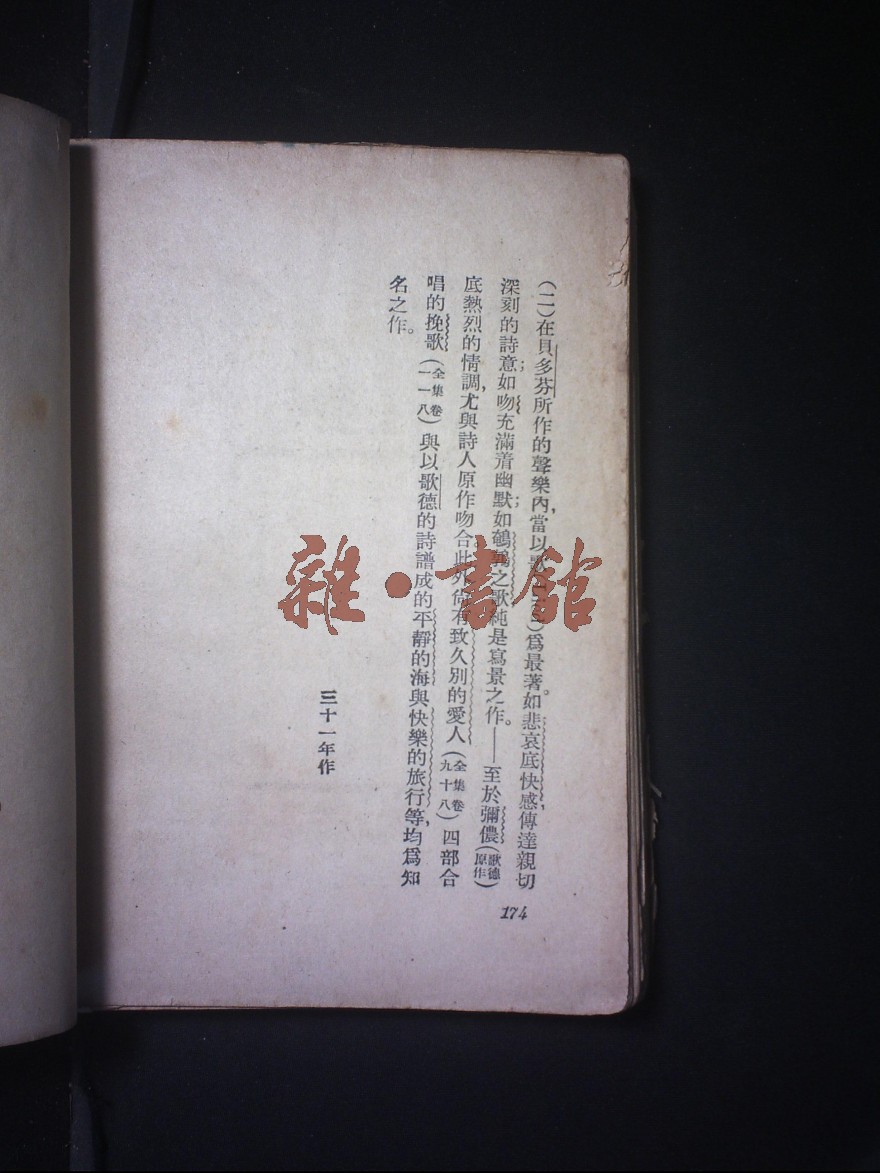 (二)在貝多芬所作的聲樂內,當以歌　　)爲最著。如悲哀底快感,傳達親切
深刻的詩意;如吻充滿着幽默;如鵪鶉之歌純是寫景之作。——至於彌儂(歌德原作)
底熱烈的情調,尤與詩人原作吻合。此外尙有致久別的愛人(全集卷九十八)四部合
唱的挽歌(全集卷一一八)與以歌德的詩譜成的平靜的海與快樂的旅行等,均爲知
名之作。
三十一年作
174
雜·書館